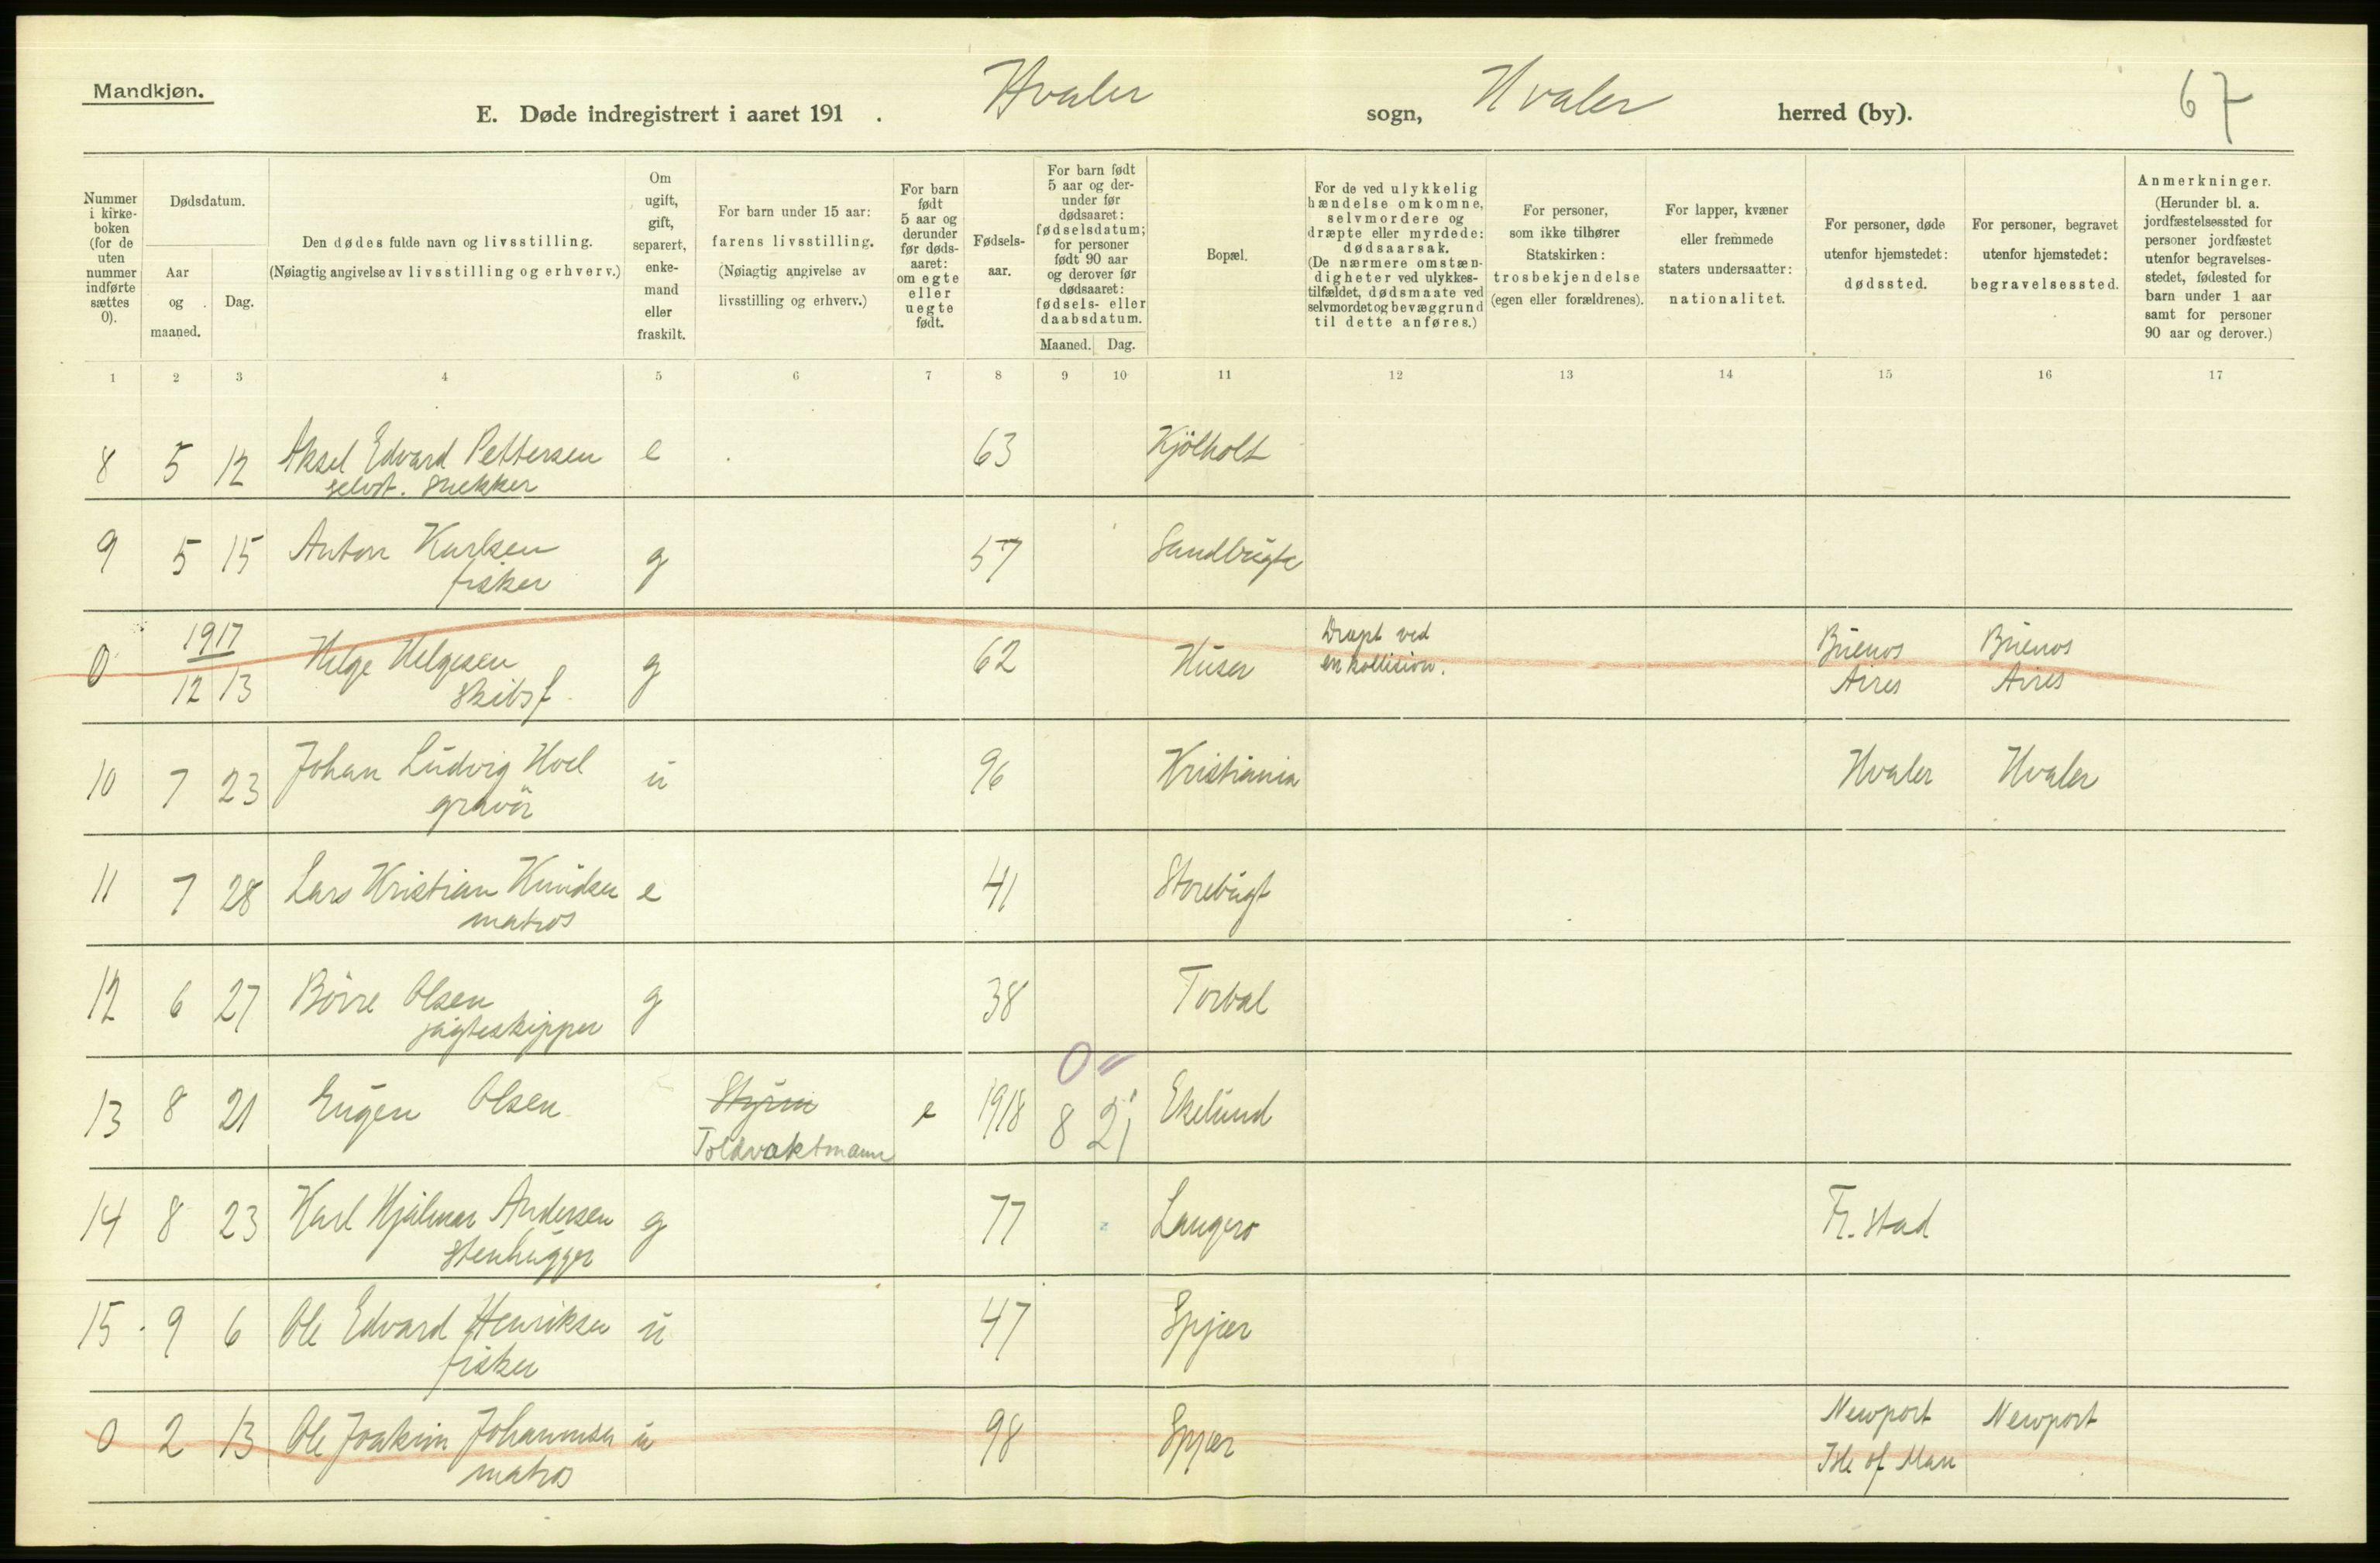 Mandkjøn.
E. Døde indregistrert i aaret 191 . Hvaler sogn, Hvaler herred (by). 67
Nummer i kirke-boken (for de uten nummer indførte sættes 0).
Dødsdatum.
Aar og maaned.
Dag.
Den dødes fulde navn og livsstilling.
(Nøiagtig angivelse av livsstilling og erhverv.)
Om ugift, gift, separert, enke-mand eller fraskilt.
For barn under 15 aar:
farens livsstilling.
(Nøiagtig angivelse av
livsstilling og erhverv.)
For barn født 5 aar og derunder før døds-aaret: om egte eller uegte født.
Fødsels-aar.
For barn født 5 aar og der-under før dødsaaret: fødselsdatum; for personer født 90 aar og derover før dødsaaret: fødsels- eller daabsdatum.
Maaned. Dag.
Bopæl.
For de ved ulykkelig hændelse omkomne, selvmordere og dræpte eller myrdede: dødsaarsak. (De nærmere omstæn-digheter ved ulykkes-tilfældet, dødsmaate ved selvmordet og bevæggrund til dette anføres.)
For personer, som ikke tilhører Statskirken: trosbekjendelse (egen eller forældrenes).
For lapper, kvæner eller fremmede staters undersaatter: nationalitet.
For personer, døde utenfor hjemstedet: dødssted.
For personer, begravet utenfor hjemstedet: begravelsessted.
Anmerkninger. (Herunder bl. a. jordfæstelsessted for personer jordfæstet utenfor begravelses-stedet, fødested for barn under 1 aar samt for personer 90 aar og derover.)
1 2 3 4 5 6 7 8 9 10 11 12 13 14 15 16 17
8 5 12 Aksel Edvard Pettersen e 63 Kjölholt
selvst. Snekker
9 5 15 Anton Karlsen g 57 Sandbugte
fisker
1917
0 12 13 Helge Helgesen g 62 Huser Dræpt ved en kollision. Buenos Aires Buenos Aires
Skibsf.
10 7 23 Johan Ludvig Hoel u 96 Kristiania Hvaler Hvaler
gravör
11 7 28 Lars Kristian Knudsen e 41 Storebugt
matros
12 6 27 Börre Olsen g 38 Torbal
jagteskipper
0
13 8 21 Eugen Olsen Styrm e 1918 8 21 Ekelund
Toldvaktmann
14 8 23 Karl Hjalmar Andersen g 77 Laugero Fr.stad
Stenhugger
15 9 6 Ole Edvard Henriksen u 47 Spjær
fisker
0 2 13 Ole Joakim Johannsen u 98 Spjær Newport Newport
matros Isle of Man